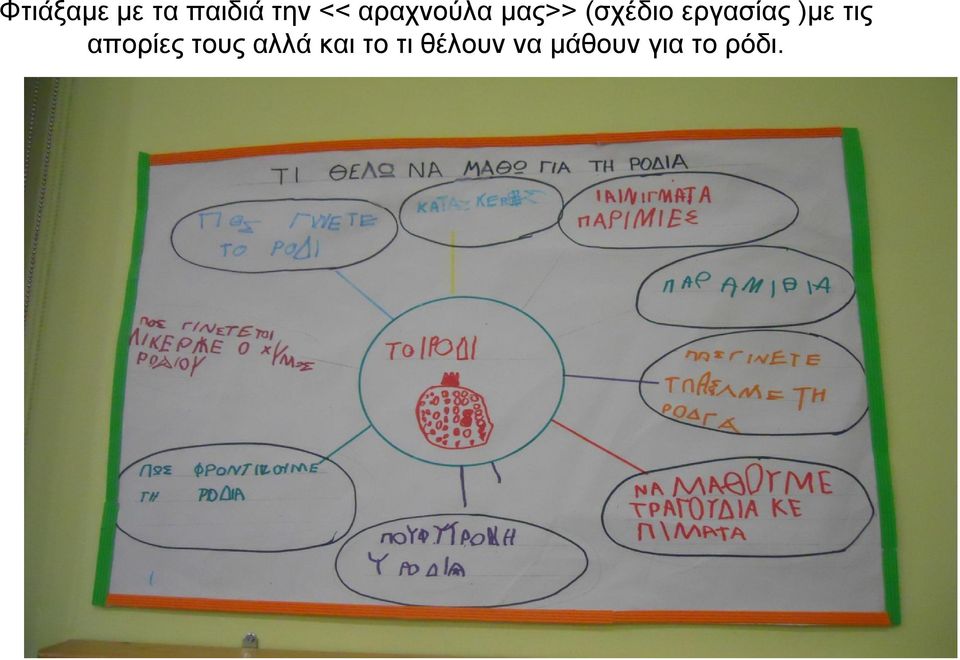 Φτιάξαμε με τα παιδιά την << αραχνούλα μας>> (σχέδιο εργασίας )με τις
απορίες τους αλλά και το τι θέλουν να μάθουν για το ρόδι.
ΤΙ ΘΕΛΩ ΝΑ ΜΑΘΩ ΓΙΑ ΤΗ ΡΟΔΙΑ
ΠΟΣ ΓΙΝΕΤΕ
ΤΟ ΡΟΔΙ
ΙΑΙΝΙΓΜΑΤΑ
ΠΑΡΙΜΙΕΣ
ΠΑΡΑΜΙΘΙΑ
ΠΟΣ ΓΙΝΕΤΕΤΟΙ
ΛΙΚΕΡΜΕ Ο ΧΥΜΟΣ
ΡΟΔΙΟΥ
ΤΟ ΡΟΔΙ
ΠΟΣ ΓΙΝΕΤΕ
ΜΕ ΤΗ
ΠΩΣ ΦΡΟΝΤΙΖΟΥΜΕ
ΤΗ ΡΟΔΙΑ
ΝΑ ΜΑΘΟΥΜΕ
ΤΡΑΓΟΥΔΙΑ ΚΕ
ΠΙΜΑΤΑ
ΠΟΥΦΥΤΡΟΝΗ
Υ ΡΟΔΙΑ